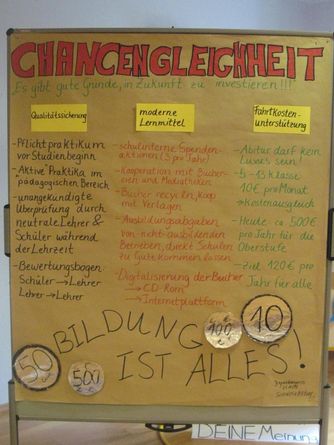 CHANCENGLEICHHEIT
Es gibt gute Gründe, in Zukunft zu investieren!!!
Qualitätssicherung
- Pflichtpraktikum
vor Studienbeginn
- "Aktive" Praktika im
pädagogischen Bereich
- unangekündigte
Überprüfung durch
neutrale Lehrer &
Schüler während
der Lehrzeit
- Bewertungsbogen:
Schüler → Lehrer
Lehrer → Lehrer
moderne
Lernmittel
- schulinterne Spenden-
aktionen (3 pro Jahr)
- Kooperation mit Bücher-
eien und Mediatheken
- Bücher recyceln, Koop.
mit Verlagen
- Ausbildungsabgaben
von nicht-ausbildenden
Betrieben, direkt Schulen
zu Gute kommen lassen
- Digitalisierung der Bücher
→ CD-Rom
→ Internetplattform
Fahrtkosten-
unterstützung
- Abitur darf kein
Luxus sein!
- 5-13 Klasse
10€ pro Monat
→ Kostenausgleich
- Heute: ca. 500€
pro Jahr für die
Oberstufe
- Ziel: 120€ pro
Jahr für alle
BILDUNG
IST ALLES!
50
500
100
€
10
DEINE Meinung